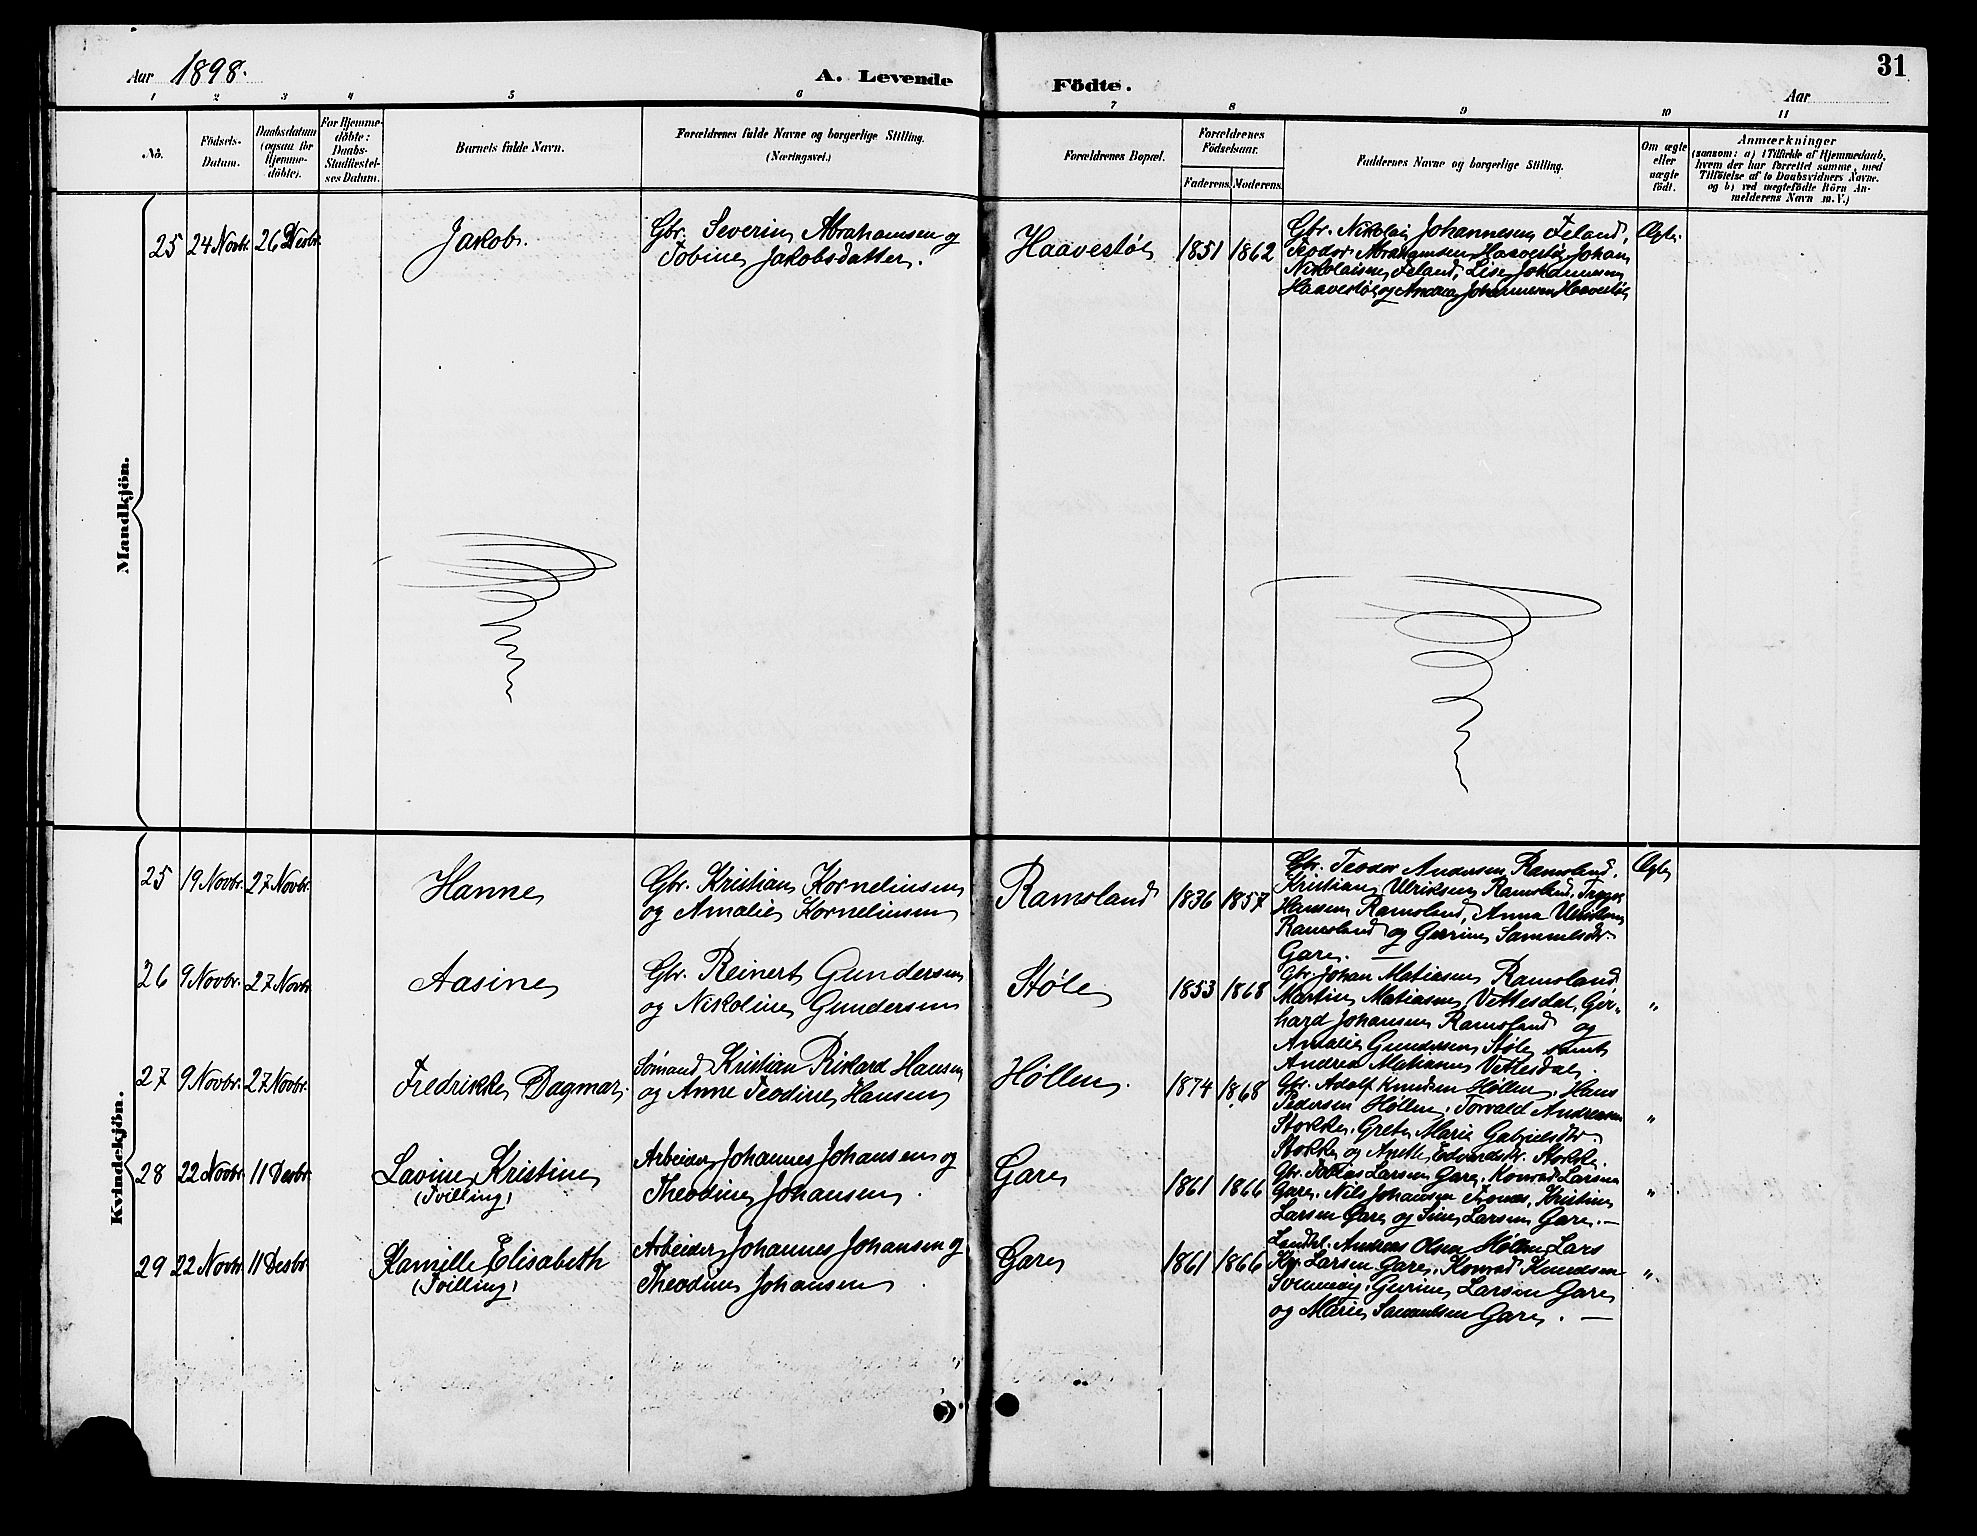 Aar 1898.
A. Levende Födte.
31
Aar
1 2 3 4 5 6 7 8 9 10 11
No.
Födsels-
Datum.
Daabsdatum
(ogsaa for
Hjemme-
döbte).
For Hjemme-
döbte:
Daabs-
Stadfæstel-
ses Datum.
Barnets fulde Navn.
Forældrenes fulde Navne og borgerlige Stilling.
(Næringsvei.)
Forældrenes Bopæl.
Forældrenes
Födselsaar.
Faderens. Moderens.
Faddernes Navne og borgerlige Stilling.
Om ægte
eller
uægte
født.
Anmærkninger
(saasom: a) i Tilfælde af Hjemmedaab,
hvem der har forrettet samme, med
Tilföielse af to Daabsvidners Navne.
og b) ved uægtefödte Börn An-
melderens Navn m. V.)
Mandkjön.
25 24 Novbr. 26 Desbr. Jakob.
Gbr. Severin Abrahamsen og
Tobine Jakobsdatter.
Haavestøl 1851 1862
Gbr. Nikolai Johannesen Feland,
Teodor Abrahamsen Haavestøl, Johan
Nikolaisen Feland, Lise Johannesen
Haavestøl og Andrea Johannesen Haavestøl
Ægte.
Kvindekjön.
25 19 Novbr. 27 Novbr. Hanne
Gbr. Kristian Kornelinsen
og Amalie Kornelinsen
Ramsland 1836 1857
Gbr. Teodor Andersen Ramsland,
Kristian Ulriksen Ramsland, Trygve
Hansen Ramsland, Anna Ulriksen
Ramsland og Gerrine Samuelsdtr.
Gare. —
Ægte
26 9 Novbr. 27 Novbr. Aasine
Gbr. Reinert Gundersen
og Nikoline Gundersen
Støle 1853 1868
Gbr. Johan Matiasen Ramsland,
Martin Matiasen Vittesdal, Ger-
hard Johansen Ramsland og
Amalie Gundersen Støle samt
Andrea Matiasen Vittesdal.
"
27 9 Novbr. 27 Novbr. Fredrikke Dagmar.
Sømand Kristian Rikard Hansen
og Anne Teodine Hansen
Høllen. 1874 1868
Gbr. Adolf Knudsen Høllen, Hans
Pedersen Høllen, Torvald Andreasen
Stokke, Grete Marie Gabrielsdtr.
Stokke og Anette Edvardsdtr. Stokke.
"
28 22 Novbr. 11 Desbr. Lavine Kristine
(Tvilling)
Arbeider Johannes Johansen og
Theodine Johansen.
Gare 1861 1866
Gbr. Tobias Larsen Gare, Konrad Larsen
Gare, Nils Johansen Trones, Kristine
Larsen Gare og Sine Larsen Gare. —
"
29 22 Novbr. 11 Desbr. Kamille Elisabeth
(Tvilling)
Arbeider Johannes Johansen og
Theodine Johansen.
Gare 1861 1866
Landh. Andreas Olsen Høllen, Lars
Kr. Larsen Gare, Konrad Knudsen
Svennevig, Gurine Larsen Gare
og Marie Samuelsen Gare. —
"